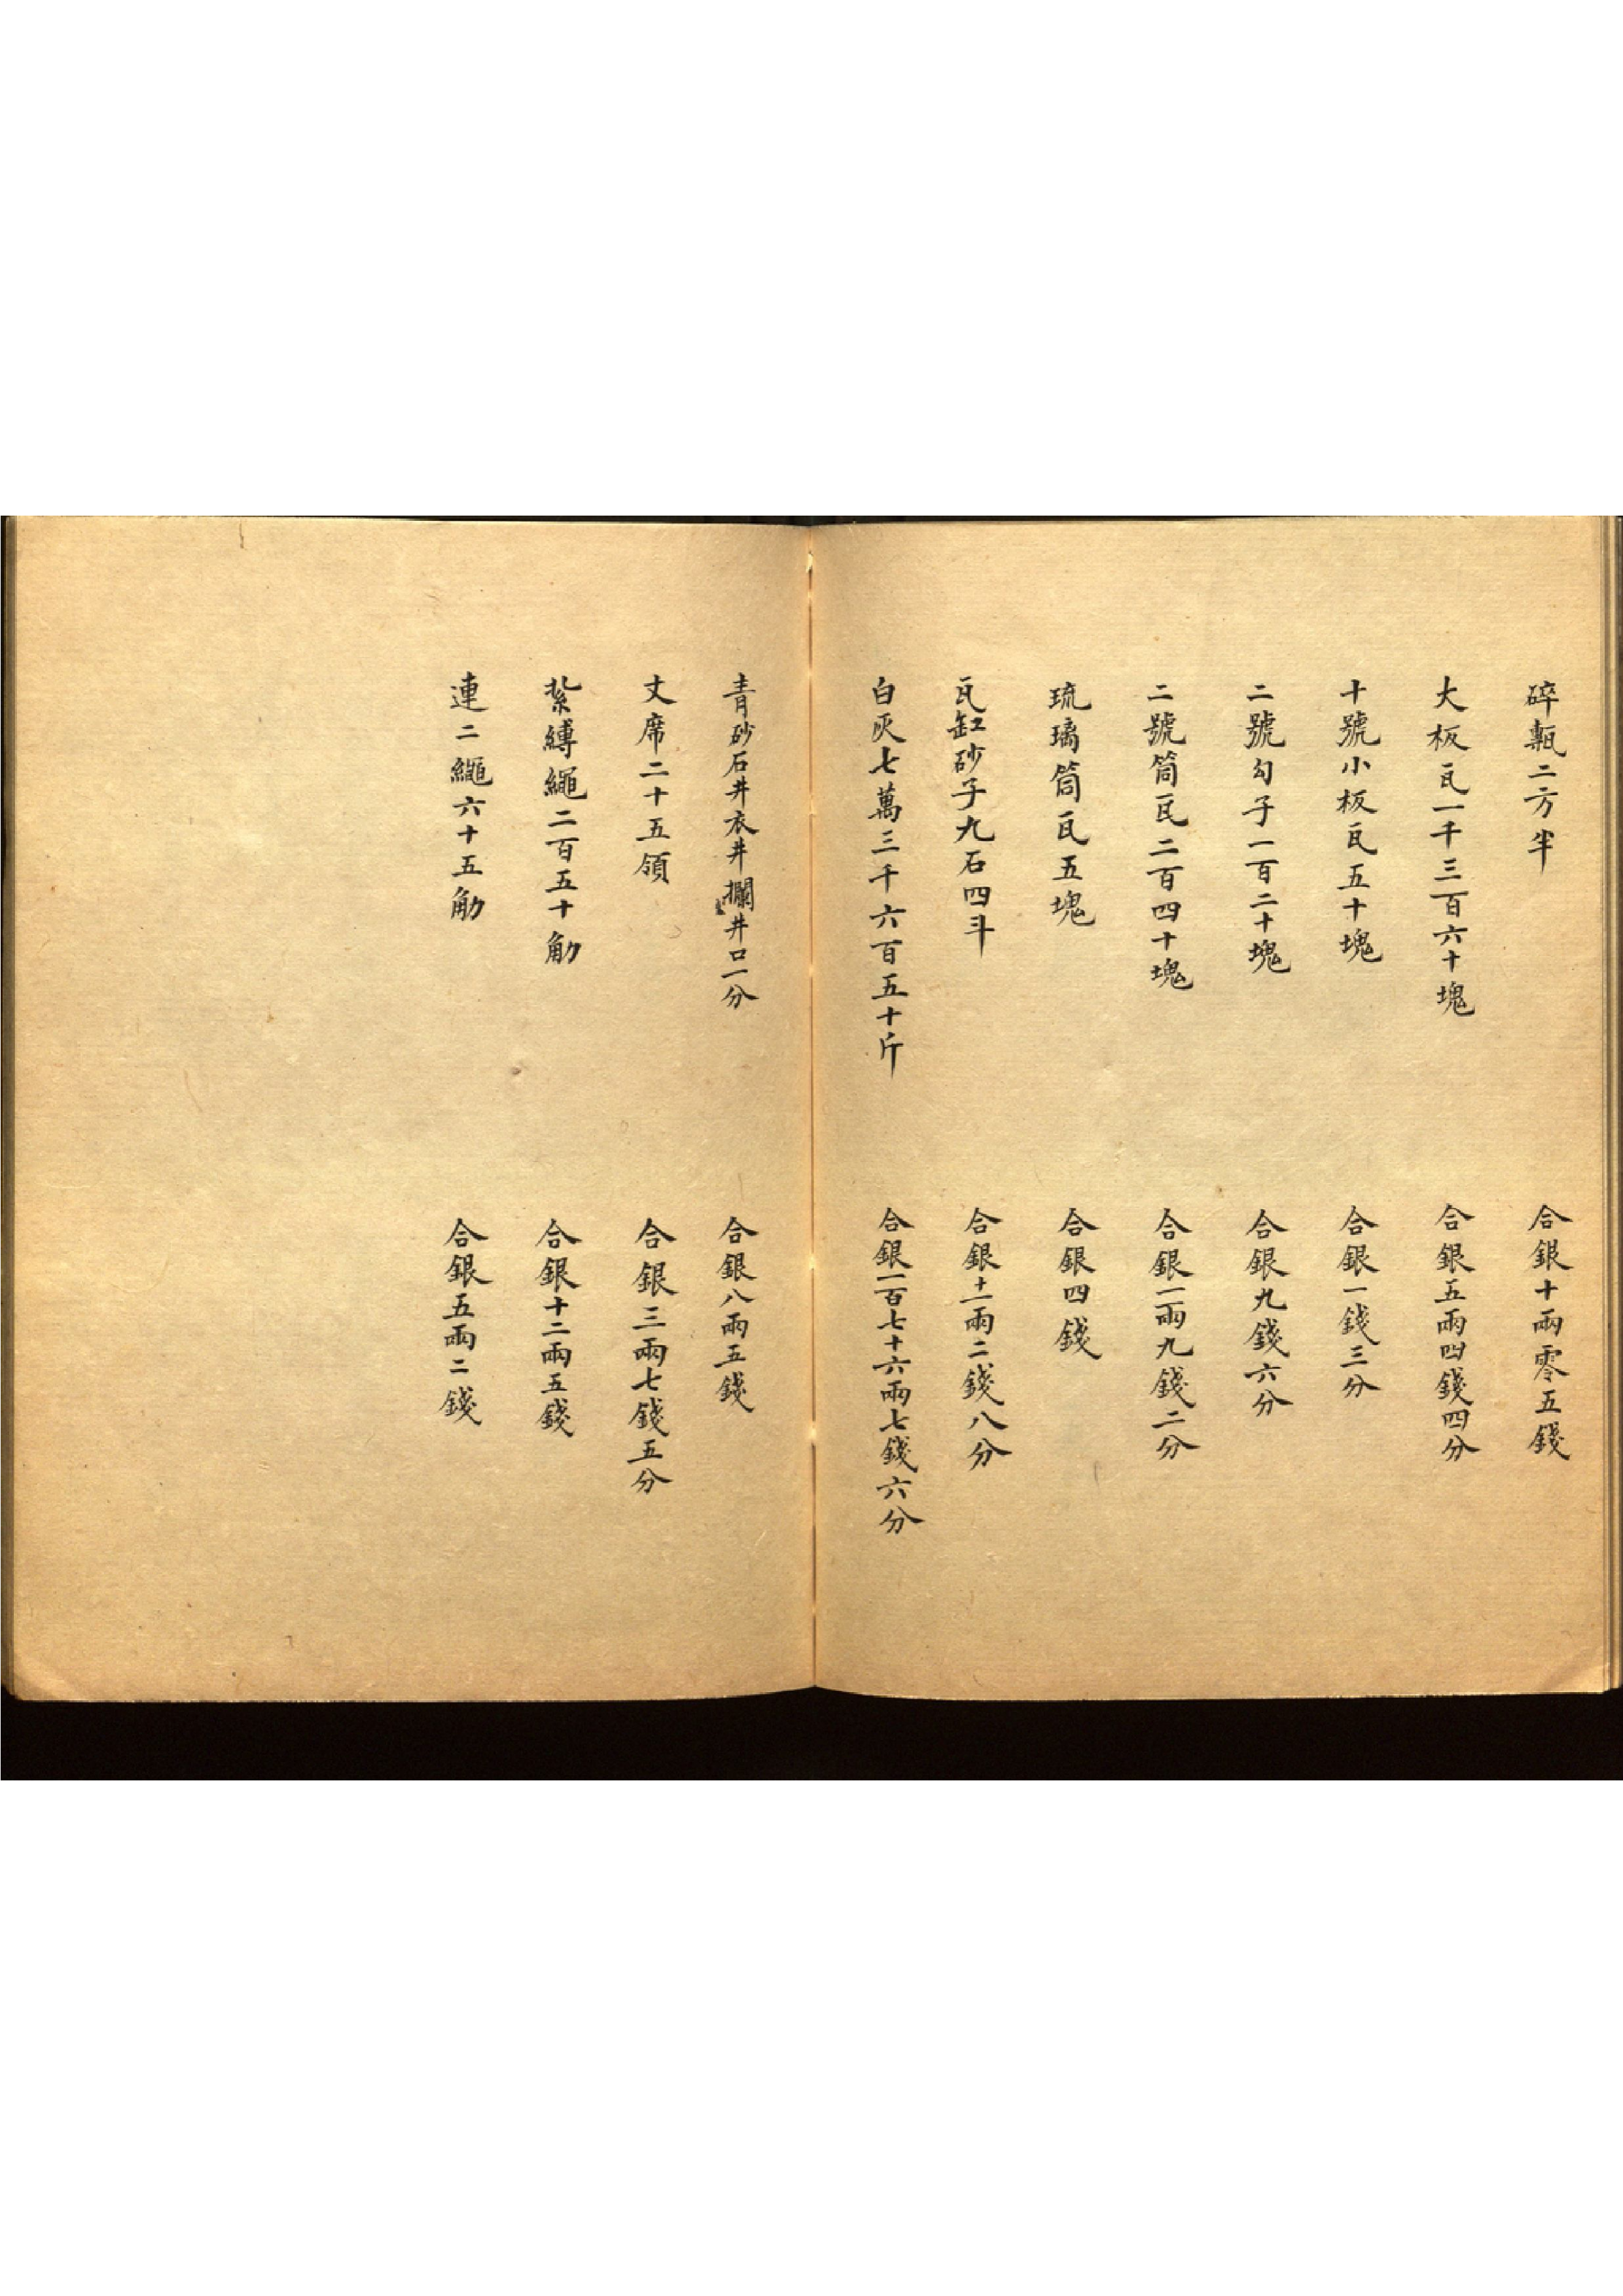 碎甎二方半　合銀十兩零五錢
大板瓦一千三百六十塊　合銀五兩四錢四分
十號小板瓦五十塊　合銀一錢三分
二號勾子一百二十塊　合銀九錢六分
二號筒瓦二百四十塊　合銀一兩九錢二分
琉璃筒瓦五塊　合銀四錢
瓦缸砂子九石四斗　合銀十一兩二錢八分
白灰七萬三千六百五十斤　合銀一百七十六兩七錢六分
青砂石井衣井攔井口一分　合銀八兩五錢
丈席二十五領　合銀三兩七錢五分
紮縛繩二百五十觔　合銀十二兩五錢
連二繩六十五觔　合銀五兩二錢